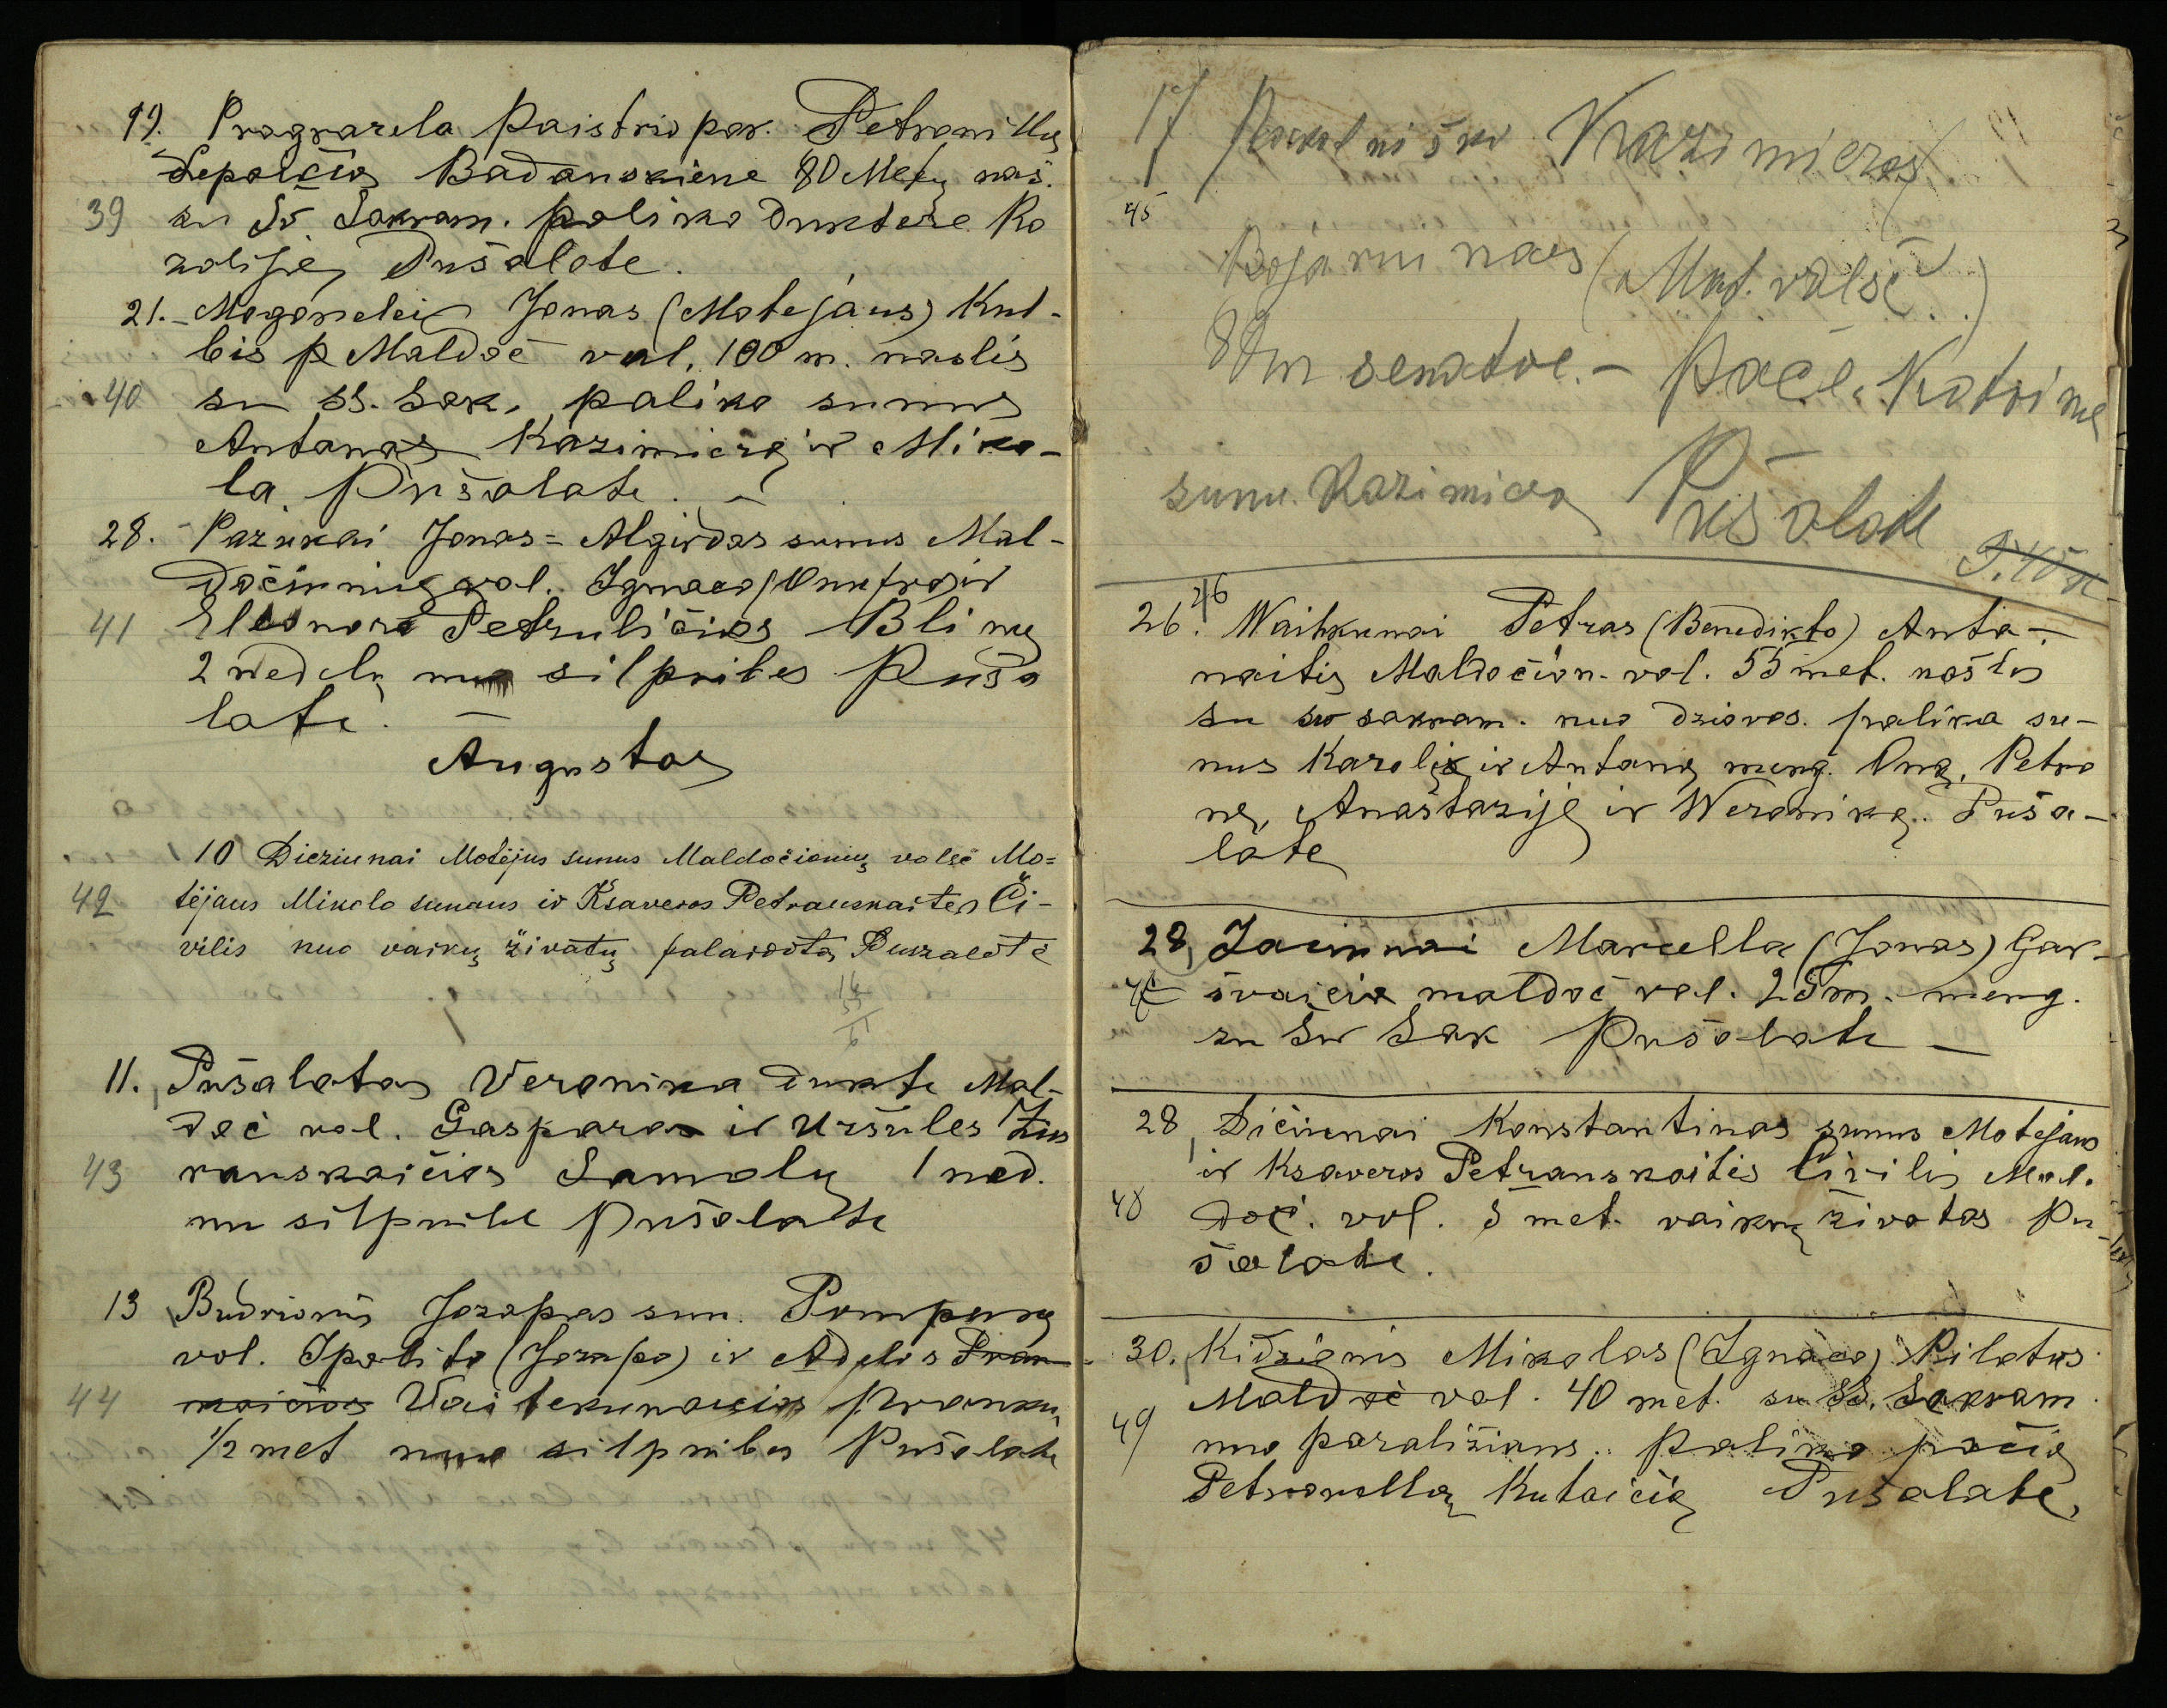 19. Pragrarela Paistrio par. Petronillа
Lepolčia Badauskiene 80 Metų naš.
39 su Šv. Sakram. paliko duktere Ro
zolije, Pušalote.
21. Jonas (Motejaus) Kul-
bis p Maldoč val. 100 m. naslis
40 su SS. Sak. paliko sunus
Antanas Kazimierą ir Miko-
la Pušalate. -
28. Pazukai Jonas = Algirdas sunus Mal-
dočiuniu val. Ignaco (Onufro) ir
41 Eleonore Petruličios Blimų
2 nedelų nuo silpnibes Puša
late. —
Augustas
10 Dicziunai Motėjus sunus Maldočionių volsč Mo=
42 tėjaus Mikolo sunaus ir Ksaveros Petrauskaites Či-
vilis nuo vaikų živatų palaidota Puszalotė
11. Pušalatas Veronika dukte Mal-
doč vol. Gasparas ir Uršules
43 ranskaičios Samolų 1 ned.
nu silpnibe Pušalate
13 Budrionis Jozapas sun. Pompėnų
vol. Ipolito (Jozapo) ir Adelės Pran-
44 kaičios Vaitekunaičios Prankų
1/2 met nuo silpnibes Pušalate
17 Kazimieras
45
Bojarunas (Mad. valsč.)
80 m senatvė. - Pače. Kotrine
sunu. Kazimiera Pušalate
26. 46 Waitkunai Petras (Benedikto) Anta-
naitis Maldočion. vol. 55 met. našlis
su sv sakram. nuo dziovos. palika su-
nus Karolį ir Antaną merg. Oną, Petro
nę, Anastaziję ir Weroniką. Puša-
late
28, Jaciunai Marcella (Jonas) Gar-
47 švaičia maldoč vol. 25 m. merg.
su Šv Sak Pušalate —
28, Dičiunai Konstantinas sunus Motejaus
ir Ksaveros Petrauskaitės Čivilis Mal.
48 doč. vol. 5 met. vaikų životas Pu-
šalate.
30. Kidžionis Mikolas (Ignaco) Pilotas
Maldoč vol. 40 met. su SS. Sakram.
49 nuo paraližiaus. Paliko pačią
Petronellą Kutaičią Pušalate.